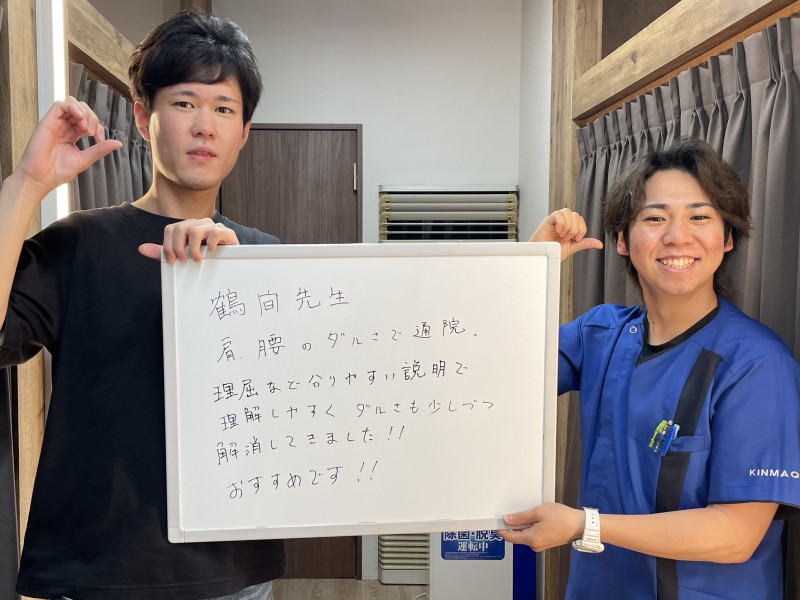 鶴間先生
肩、腰のダルさで通院。
理屈など分りやすい説明で
理解しやすく ダルさも少しづつ
解消してきました!!
おすすめです!!
KINMAQ
除菌・脱臭
運転中